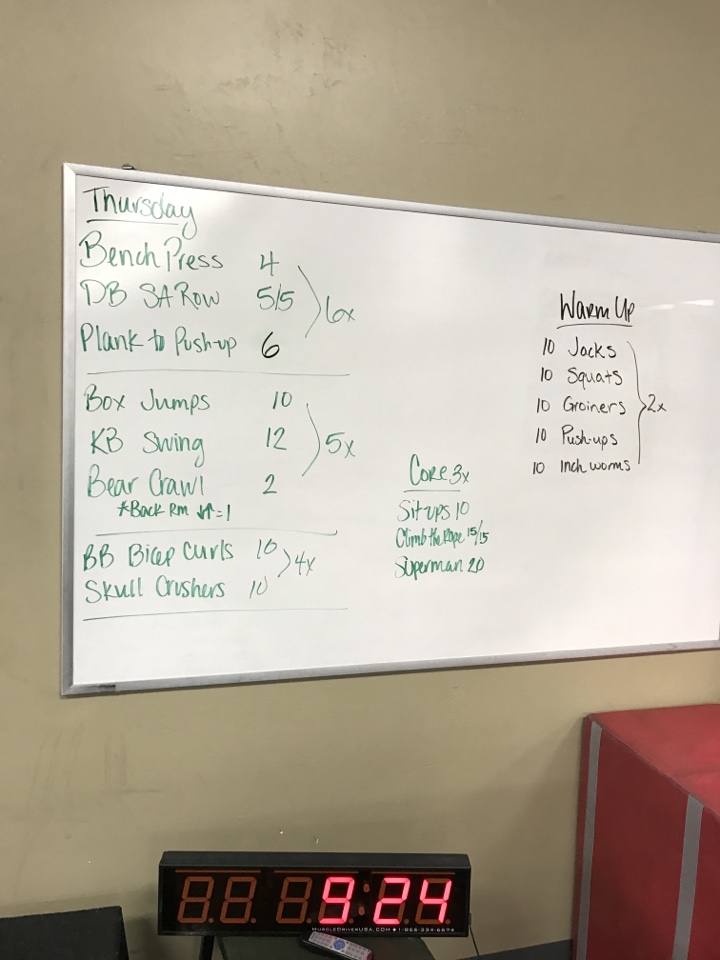 Thursday
Bench Press 4
DB SA Row 5/5
6x
Plank to Push-up 6
Box Jumps 10
KB Swing 12
5x
Bear Crawl 2
*Back Rm ↓↑=1
BB Bicep Curls 10
4x
Skull Crushers 10
Core 3x
Situps 10
Climb the Rope 15/15
Superman 20
Warm Up
10 Jacks
10 Squats
10 Groiners
2x
10 Push-ups
10 Inch worms
9:24
MUSCLEDRIVERUSA.COM • 1-866-354-6674